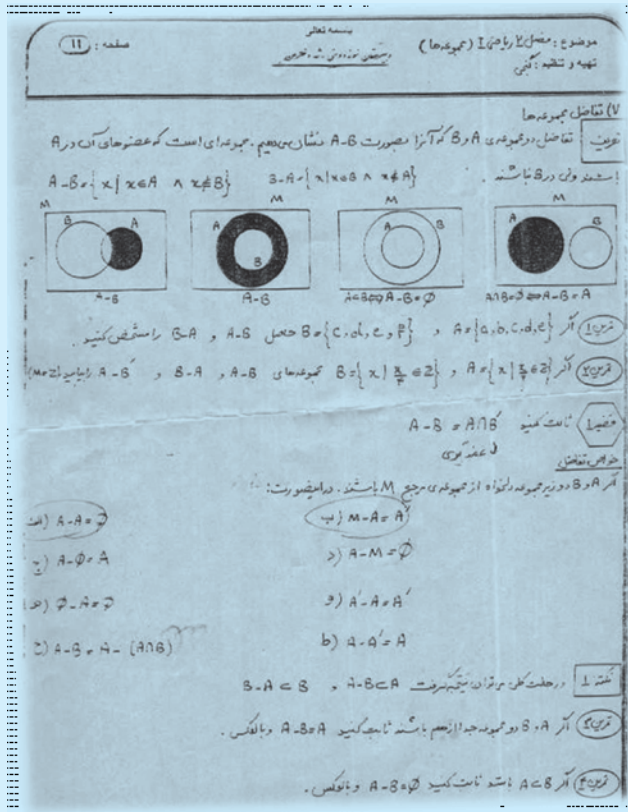 بسمه تعالی
موضوع : فصل ۲ ریاضی I (مجموعه‌ها)
صفحه : ۱۱
تهیه و تنظیم : گنجی
۷) تفاضل مجموعه‌ها
تعریف تفاضل دو مجموعه‌ی A و B که آنرا بصورت A-B نشان می‌دهیم . مجموعه‌ای است که عضوهای آن در A
باشند ولی در B نباشند .
A-B={x | x∈A ∧ x∉B} B-A={x | x∈B ∧ x∉A}
M M M M
B A A B A B A B
A-B A-B A⊂B⇔A-B=∅ A∩B=∅⇔A-B=A
تمرین ۱ اگر A={a,b,c,d,e} و B={c,d,e,f} حاصل A-B و B-A را مشخص کنید .
تمرین ۲ اگر A={x | ∈Z} و B={x | ∈Z} مجموعه‌های A-B و B-A و A-B′ را بیابید (M=Z)
قضیه ۱ ثابت کنید A-B = A∩B′
خواص تفاضل
اگر A و B دو زیرمجموعه دلخواه از مجموعه‌ی مرجع M باشند . در اینصورت :
الف) A-A=∅ ب) M-A=A′
ج) A-∅=A د) A-M=∅
ه) ∅-A=∅ و) A′-A=A′
ح) A-B=A-(A∩B) ط) A-A′=A
نکته ۱ در حالت کلی می‌توان نتیجه گرفت A-B⊂A و B-A⊂B
تمرین ۳ اگر A و B دو مجموعه جدا از هم باشند ثابت کنید A-B=A و بالعکس .
تمرین ۴ اگر A⊂B باشد ثابت کنید A-B=∅ و بالعکس .